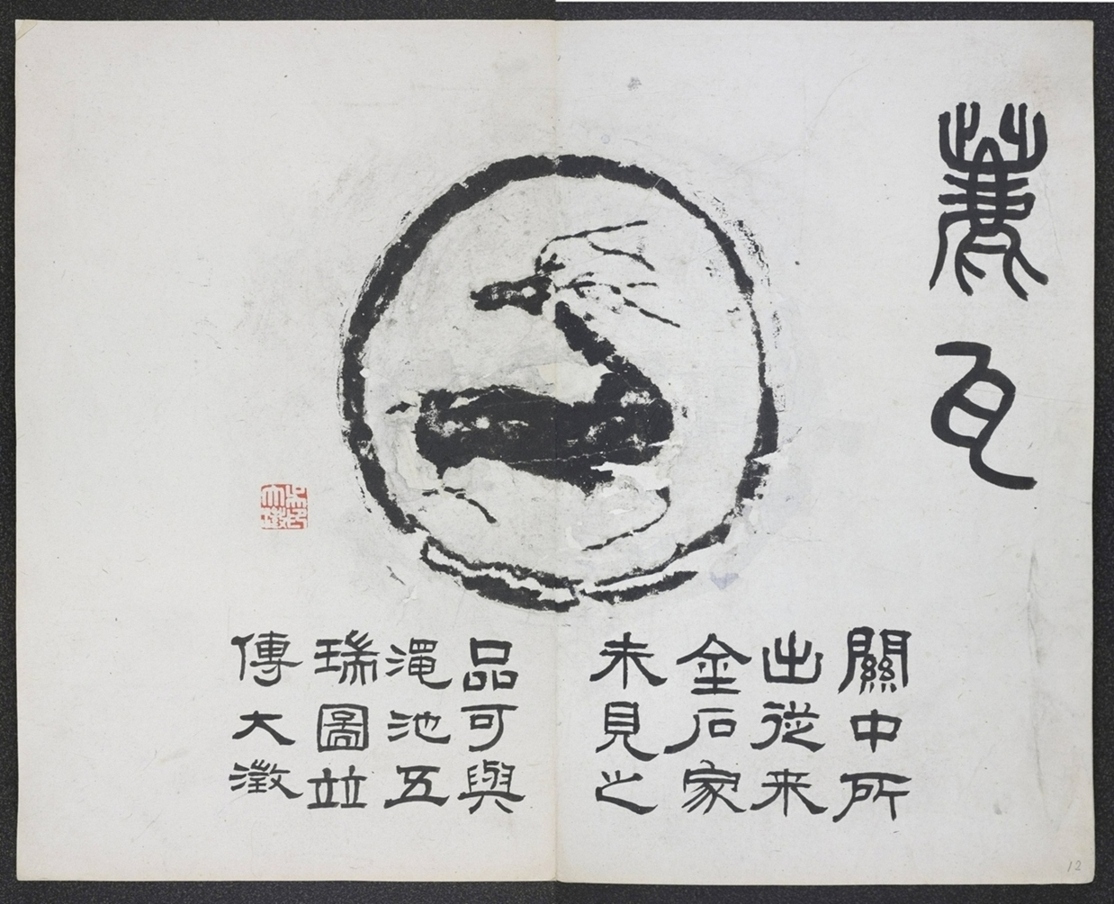 瓦
關中所
出從来
金石家
未見之
品可與
澠池五
瑞圖竝
傳大澂
吳印大澂
12